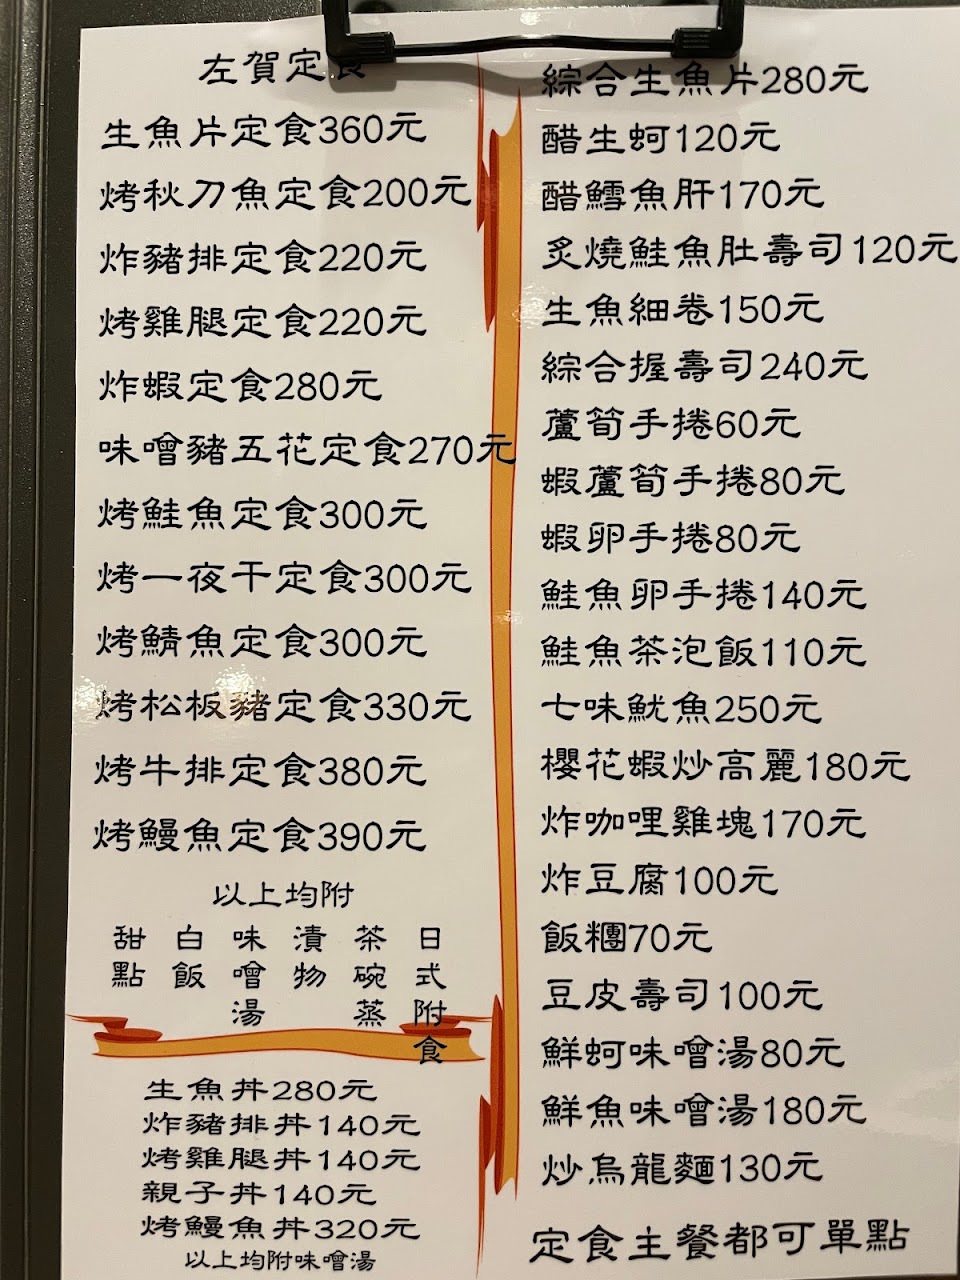 左賀定食
生魚片定食360元
烤秋刀魚定食200元
炸豬排定食220元
烤雞腿定食220元
炸蝦定食280元
味噌豬五花定食270元
烤鮭魚定食300元
烤一夜干定食300元
烤鯖魚定食300元
烤松板豬定食330元
烤牛排定食380元
烤鰻魚定食390元
以上均附
日式附食
茶碗蒸
漬物
味噌湯
白飯
甜點
生魚丼280元
炸豬排丼140元
烤雞腿丼140元
親子丼140元
烤鰻魚丼320元
以上均附味噌湯
綜合生魚片280元
醋生蚵120元
醋鱈魚肝170元
炙燒鮭魚肚壽司120元
生魚細卷150元
綜合握壽司240元
蘆筍手捲60元
蝦蘆筍手捲80元
蝦卵手捲80元
鮭魚卵手捲140元
鮭魚茶泡飯110元
七味魷魚250元
櫻花蝦炒高麗180元
炸咖哩雞塊170元
炸豆腐100元
飯糰70元
豆皮壽司100元
鮮蚵味噌湯80元
鮮魚味噌湯180元
炒烏龍麵130元
定食主餐都可單點